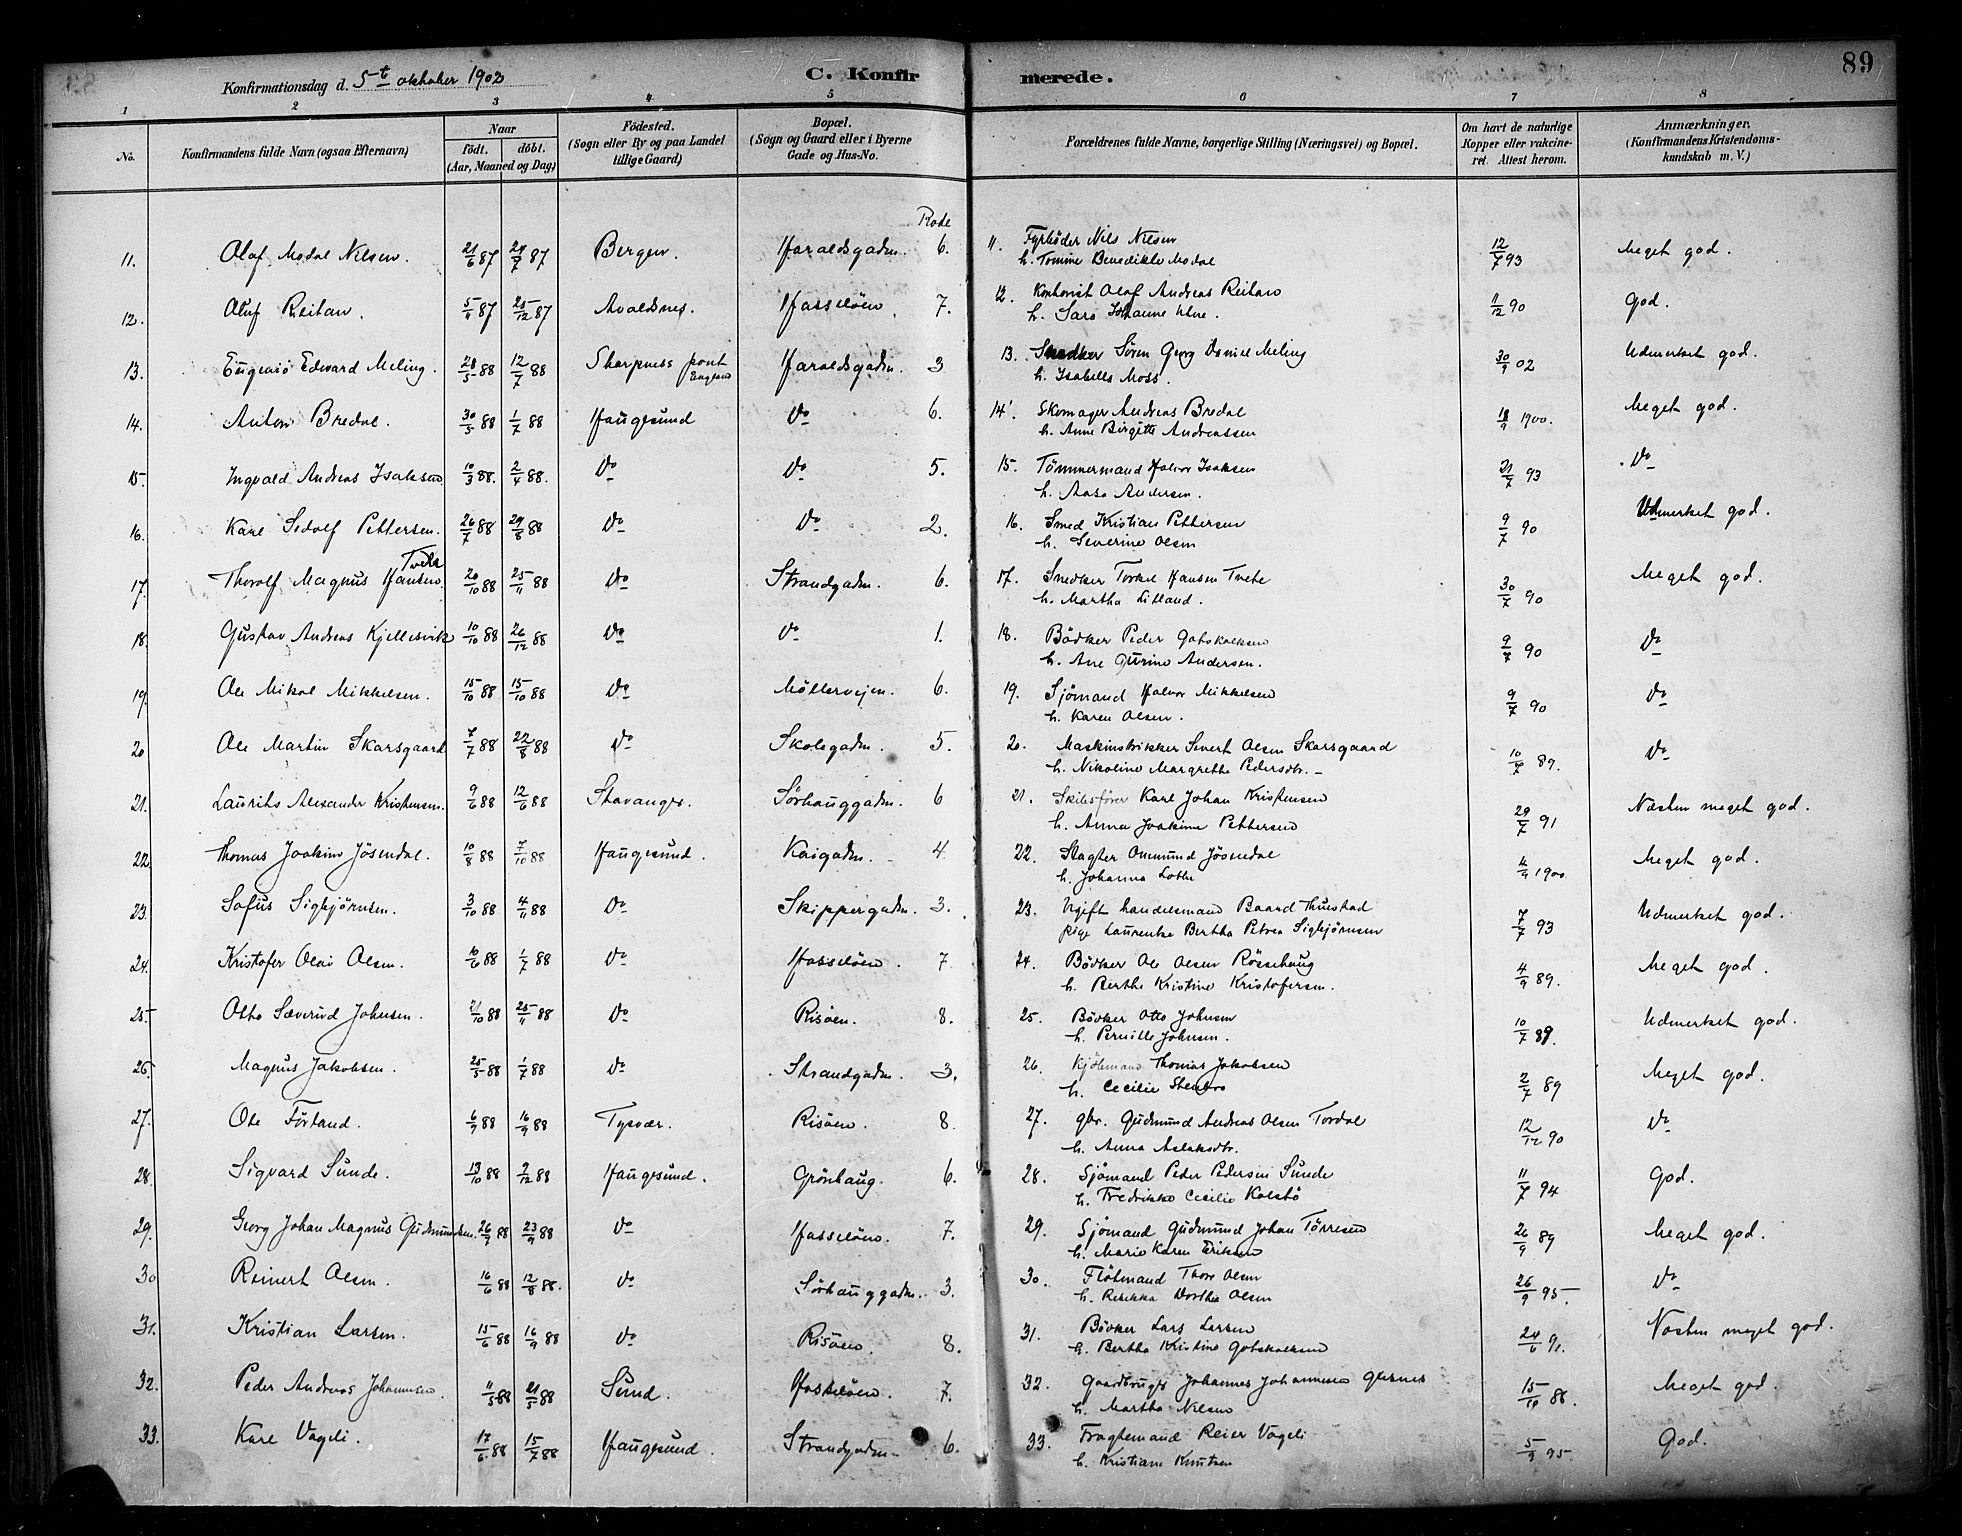 89
Konfirmationsdag d. 5-t oktober 1902
C. Konfirmerede.
1 2 3 4 5 6 7 8
No. Konfirmandens fulde Navn (ogsaa Efternavn) Naar födt. döbt. (Aar, Maaned og Dag) Födested. (Sogn eller By og paa Landet tillige Gaard) Bopæl. (Sogn og Gaard eller i Byerne Gade og Hus-No. Forældrenes fulde Navne, borgerlige Stilling (Næringsvei) og Bopæl. Om havt de naturlige Kopper eller vakcineret. Attest herom. Anmærkninger. (Konfirmandens Kristendomskundskab m. V.)
Rode
11. Olaf Modal Nilsen. 21/6 87 24/7 87 Bergen. Haraldsgaden. 6. 11. Fyrböder Nils Nilsen 12/7 93 Meget god.
h. Tomine Benedikte Modal
12. Oluf Reitan. 5/11 87 25/12 87 Avaldsnes. Hasselöen. 7. 12. Kontorist Olaf Andreas Reitan 11/12 90 God.
h. Sara Johanne
13. Edward Meling. 28/5 88 12/7 88 Sharpness point England Haraldsgaden. 3 13. Snedker Sören Georg Daniel Meling 30/9 02 Udmerket god.
h. Isabella Moss.
14. Anton Bredal. 30/5 88 1/7 88 Haugesund Do 6. 14. Skomager Andreas Bredal 18/9 1900. Meget god.
h. Anne Birgitte Andreassen
15. Ingvald Andreas Isaksen. 10/3 88. 2/4 88. Do Do 5. 15. Tömmermand Halvor Isaksen 21/7 93 Do
h. Aasa Andersen.
16. Karl Sedolf Pettersen. 26/7 88 29/8 88 Do Do 2. 16. Smed Kristian Pettersen 9/7 90 Udmerket god.
h. Severine Olsen
17. Thorolf Magnus Hansen Tvete 20/10 88 25/11 88 Do Strandgaden. 6. 17. Snedker Torkel Hansen Tvete 30/7 90 Meget god.
h. Martha Litland.
18. Gustav Andreas Kjellesvik 10/10 88 26/12 88 Do Do 1. 18. Bödker Peder Gotskalksen 9/7 90 Do
h. Ane Gurine Andersen.
19. Ole Mikal Mikkelsen. 15/10 88 15/10 88 Do Möllervejen. 6. 19. Sjömand Halvor Mikkelsen 9/7 90 Do
h. Karen Olsen.
20 Ole Martin Skarsgaard 7/7 88 22/8 88 Do Skolegaden. 5. 20. Maskinstrikker Sivert Olsen Skarsgaard 10/7 89. Do
h. Nikoline Margrethe Pedersdtr.
21. Laurits Alexander Kristensen. 9/6 88 12/6 88 Stavanger. Sörhauggaden. 6 21. Skibsförer Karl Johan Kristensen 29/7 91 Næsten meget god.
h. Anna Joakime Pettersen
22. Thomas Joakim Jösendal. 10/8 88 7/10 88 Haugesund. Kaigaden. 4 22. Slagter Omund Jösendal 4/9 1900 Meget god.
h. Johanna Lothe
23. Sofus Sigbjörnsen. 3/10 88 4/11 88 Do Skippergaden. 3. 23. Ugift handelsmand Baard Thuestad 7/7 93 Udmerket god.
pige Laurentse Bertha Petrea Sigbjörnsen
24. Kristofer Olai Olsen. 10/6 88 1/7 88 Do Hasselöen. 7 24. Bödker Ole Olsen Rössehaug 4/9 89. Meget god.
h. Berthe Kristine Kristofersen.
25. Otto Sæverud Johnsen. 21/10 88 25/11 88 Do Risöen. 8. 25. Bödker Otto Johnsen 10/7 89. Udmerket god.
h. Pernille Johnsen.
26. Magnus Jakobsen. 25/5 88 1/7 88 Do Strandgaden. 3. 26. Kjöbmand Thomas Jakobsen 2/7 89 Meget god.
h. Cecilie Stenbro
27. Ole Förland. 6/9 88 16/9 88 Tysvær. Risöen. 8. 27. gbr. Gudmund Andreas Olsen Tordal 12/12 90 Do
h. Anna Aslaksdtr.
28. Sigvard Sunde. 13/10 88 2/12 88 Haugesund. Grönhaug. 6. 28. Sjömand Peder Pedersen Sunde 11/7 94 God.
h. Fredrikke Cecilie Kolstö
29. Georg Johan Magnus Gudmundsen. 26/7 88 23/9 88 Do Hasselöen. 7. 29. Sjömand Gudmund Johan Törresen 26/9 89 Meget god.
h. Marie Karen Eriksen
30 Reinert Olsen. 16/6 88 12/8 88. Do Sörhauggaden. 3. 30. Flötmand Thore Olsen 26/9 95. Do
h. Rebekka Dorthea Olsen
31. Kristian Larsen. 15/6 88 16/9 88 Do Risöen. 8. 31. Bödker Lars Larsen 24/6 91. Næsten meget god.
h. Bertha Kristine Gotskalksen
32. Peder Andreas Johannesen 11/5 88 21/5 88 Sund. Hasselöen. 7. 32. Gaardbruger Johannes Johannesen Gjesnes 15/10 88. Meget god.
h. Martha Nilsen
33. Karl Vageli. 17/6 88 15/7 88 Haugesund. Strandgaden 6. 33. Fragtemand Reier Vageli 5/9 95. God.
h. Kristiane Knutsen